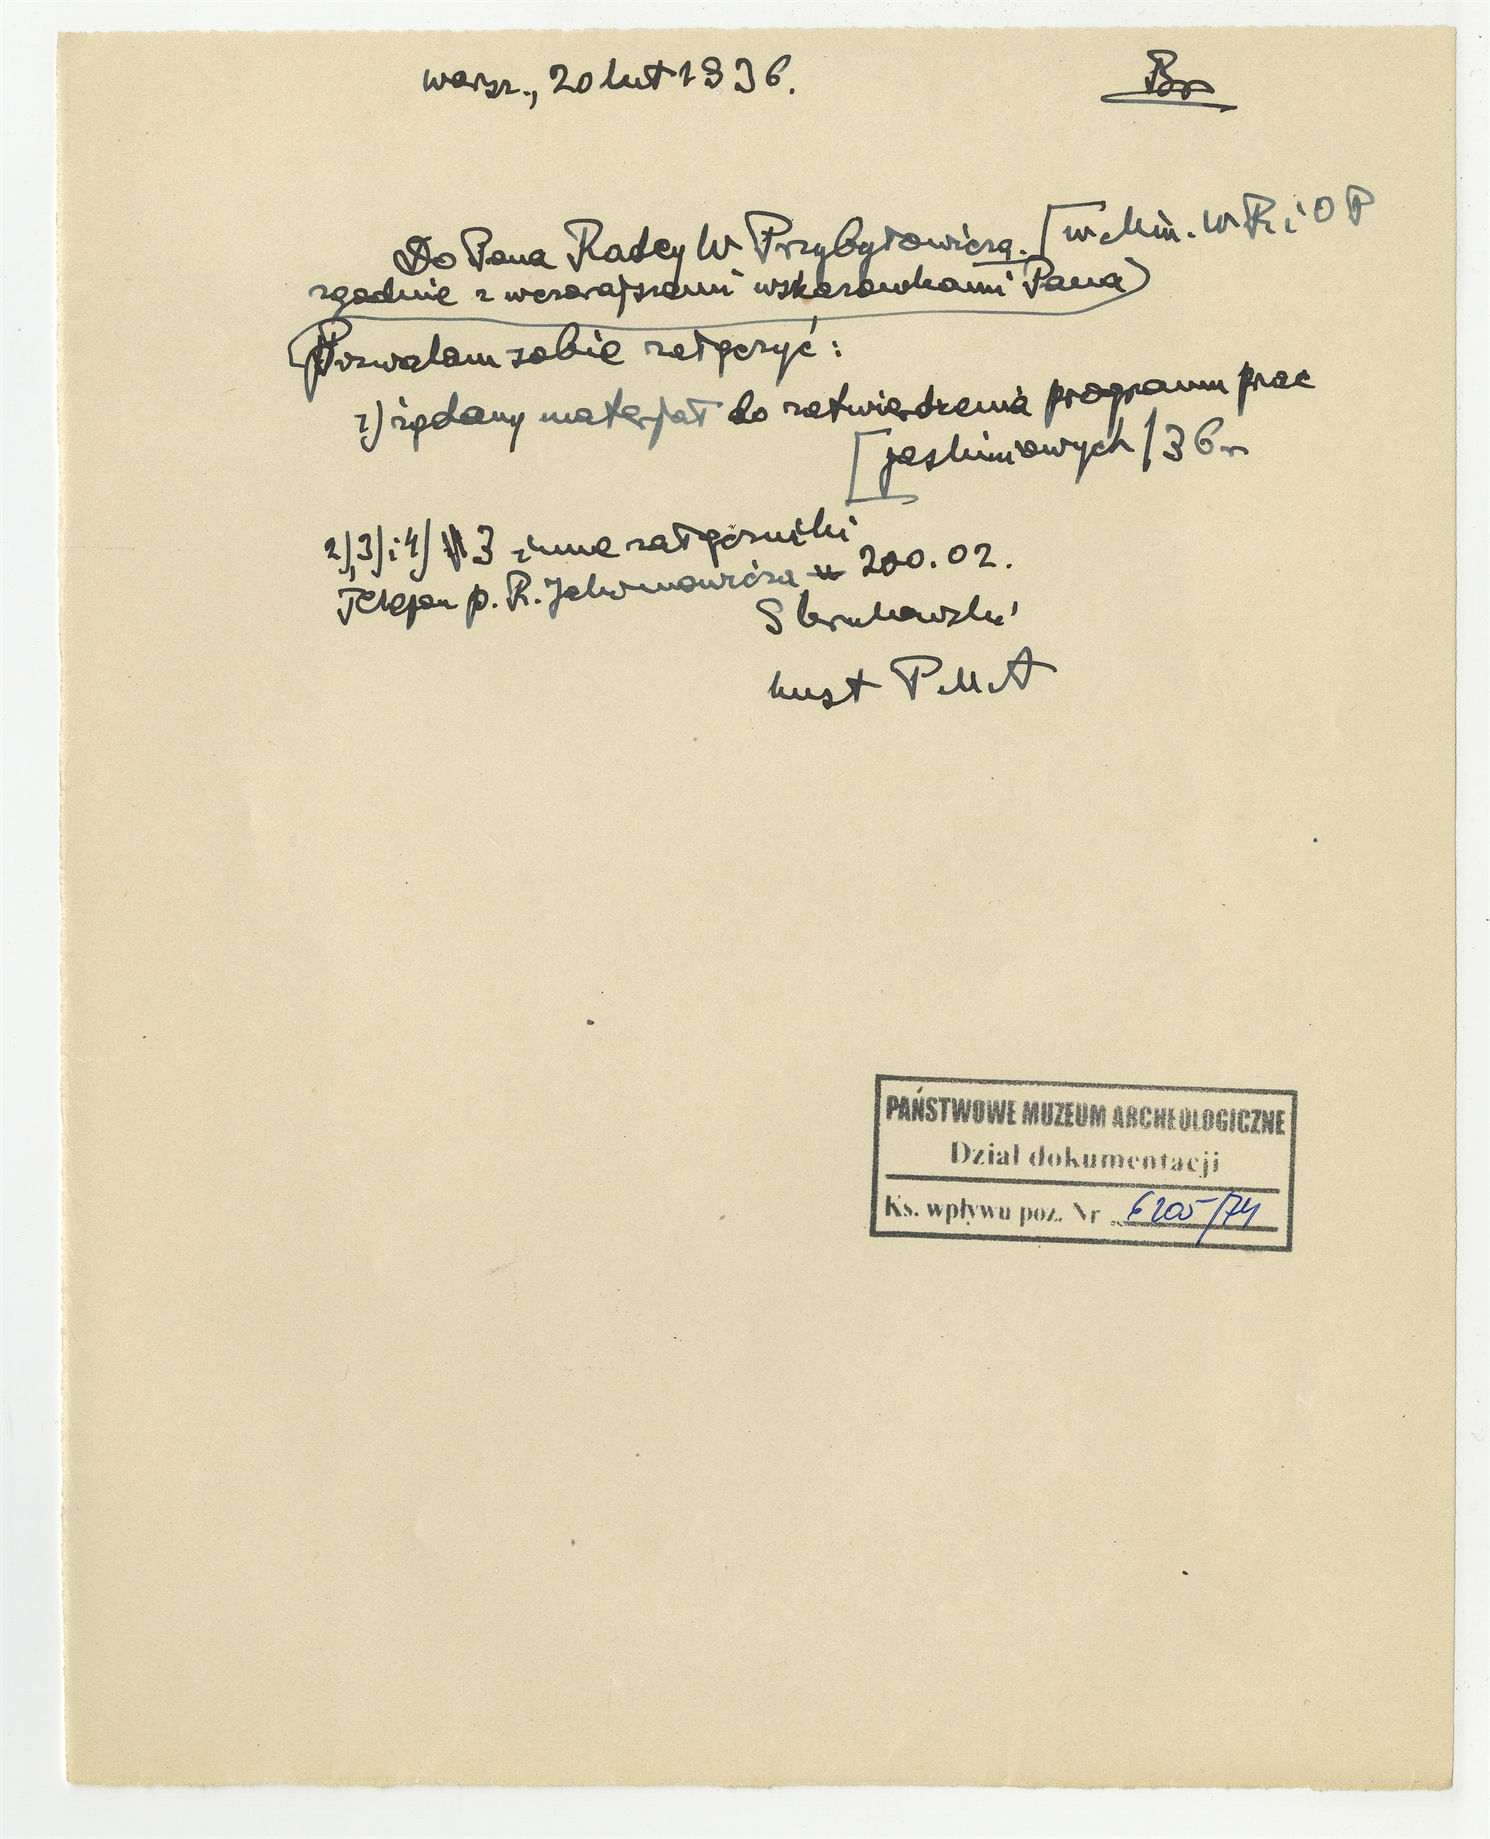 Warsz., 20 lut 1936.
Br
Do Pana Radcy W Przybyłowicza. [w Min. W R i O P
zgodnie z wczorajszemi wskazowkami Pana)
Pozwalam sobie załączyć:
1) żądany materjał do zatwierdzenia programu prac
[jaskiniowych / 36 r
2), 3) i 4) 3 inne załączniki
Telefon p. R. Jakimowicza 200.02.
S Krukowski
kust P.M.A
PAŃSTWOWE MUZEUM ARCHEOLOGICZNE
Dział dokumentacji
Ks. wpływu poz. Nr 6205/74